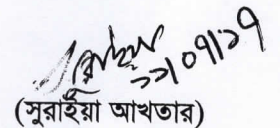 ১১/০৭/১৭
(সুরাইয়া আখতার)